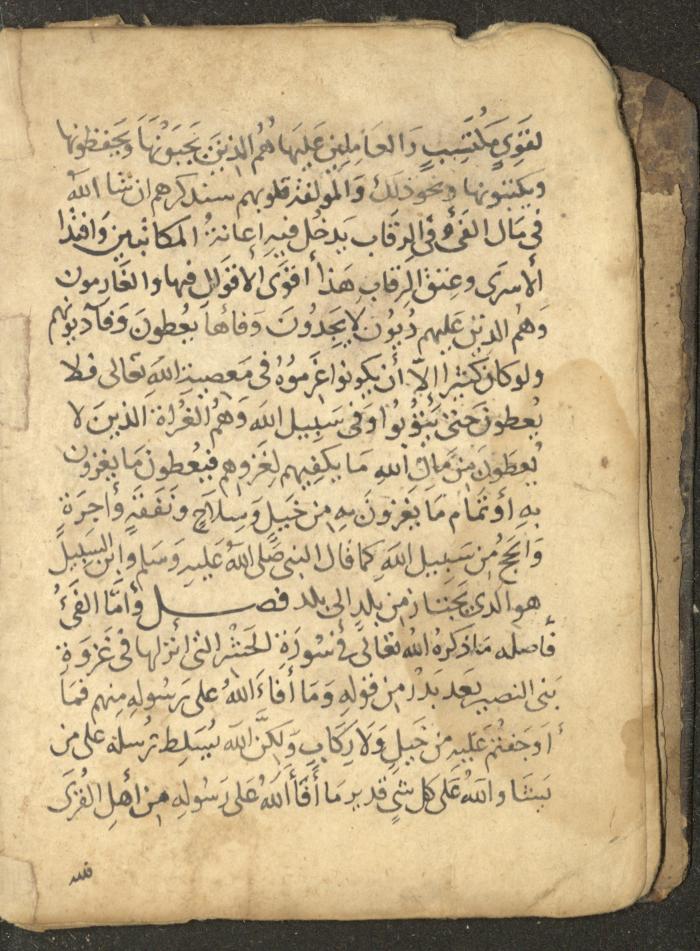 لقَوِيٍّ مكْتَسِبٍ وَالعَامِلِين عَلَيهَا هُمُ الذِينَ يَجْبَوْنَهَا وَيَحْفَظُونهَا
ويكتبونها ونحو ذلك وَالمؤلفة قلوبهم سنذكرهم ان شا اللهُ
في مَال الفَئ وفي الرِقَاب يَدخُل فيهِ إعانةُ المكاتَبين وَافتدا
الأسرَى وعِتق الرقاب هَذا أقوَى الأقوَال فيها والغَارمون
وَهُمُ الذين عَليهم دُيُون لا يَجِدُونَ وَفائَها يعُطونَ وَفَآديونهم
ولو كان كثيرا إلاّ أن يكونوا غَرمُوهُ في مَعصيةِ اللهِ تعَالى فلا
يُعطونَ حتى يَتُوبُوا وفي سَبِيل الله وَهُمُ الغُزاة الذينَ لا
يُعطَونَ مِن مَالِ اللهِ مَا يكفيهم لِغَزوهم فيُعطون مَا يغزون
بهِ أو تمَام مَا يَغزونَ بهِ مِن خَيلٍ وَسِلَاحٍ ونَفقَةٍ وأجرَةٍ
وَالحج مِن سَبِيل اللهِ كما قال النبى صَلى اللهُ عَليهِ وَسَلم وابن السَبيل
هو الذى يَجتاز مِن بلدٍ إلى بلد فصـــل وأمّا الفَئُ
فأصله مَا ذكرهُ اللهُ تعَالى في سُورَةِ الحَشرِ التى أنزلها فى غَزوَة
بَنى النضير بعد بَدْر مِن قولهِ وَمَا أفَاءَ اللهُ على رَسُولهِ مِنهم فمَا
أوجَفتُم عَليهِ مِن خيلٍ وَلَا ركَابٍ وَلكِنَّ اللهَ يُسَلِط رُسله على مَن
يَشَا واللهُ عَلى كل شئٍ قدير مَا أَفَاَ اللهُ عَلى رَسُولهِ مِن أهِل القُرَى